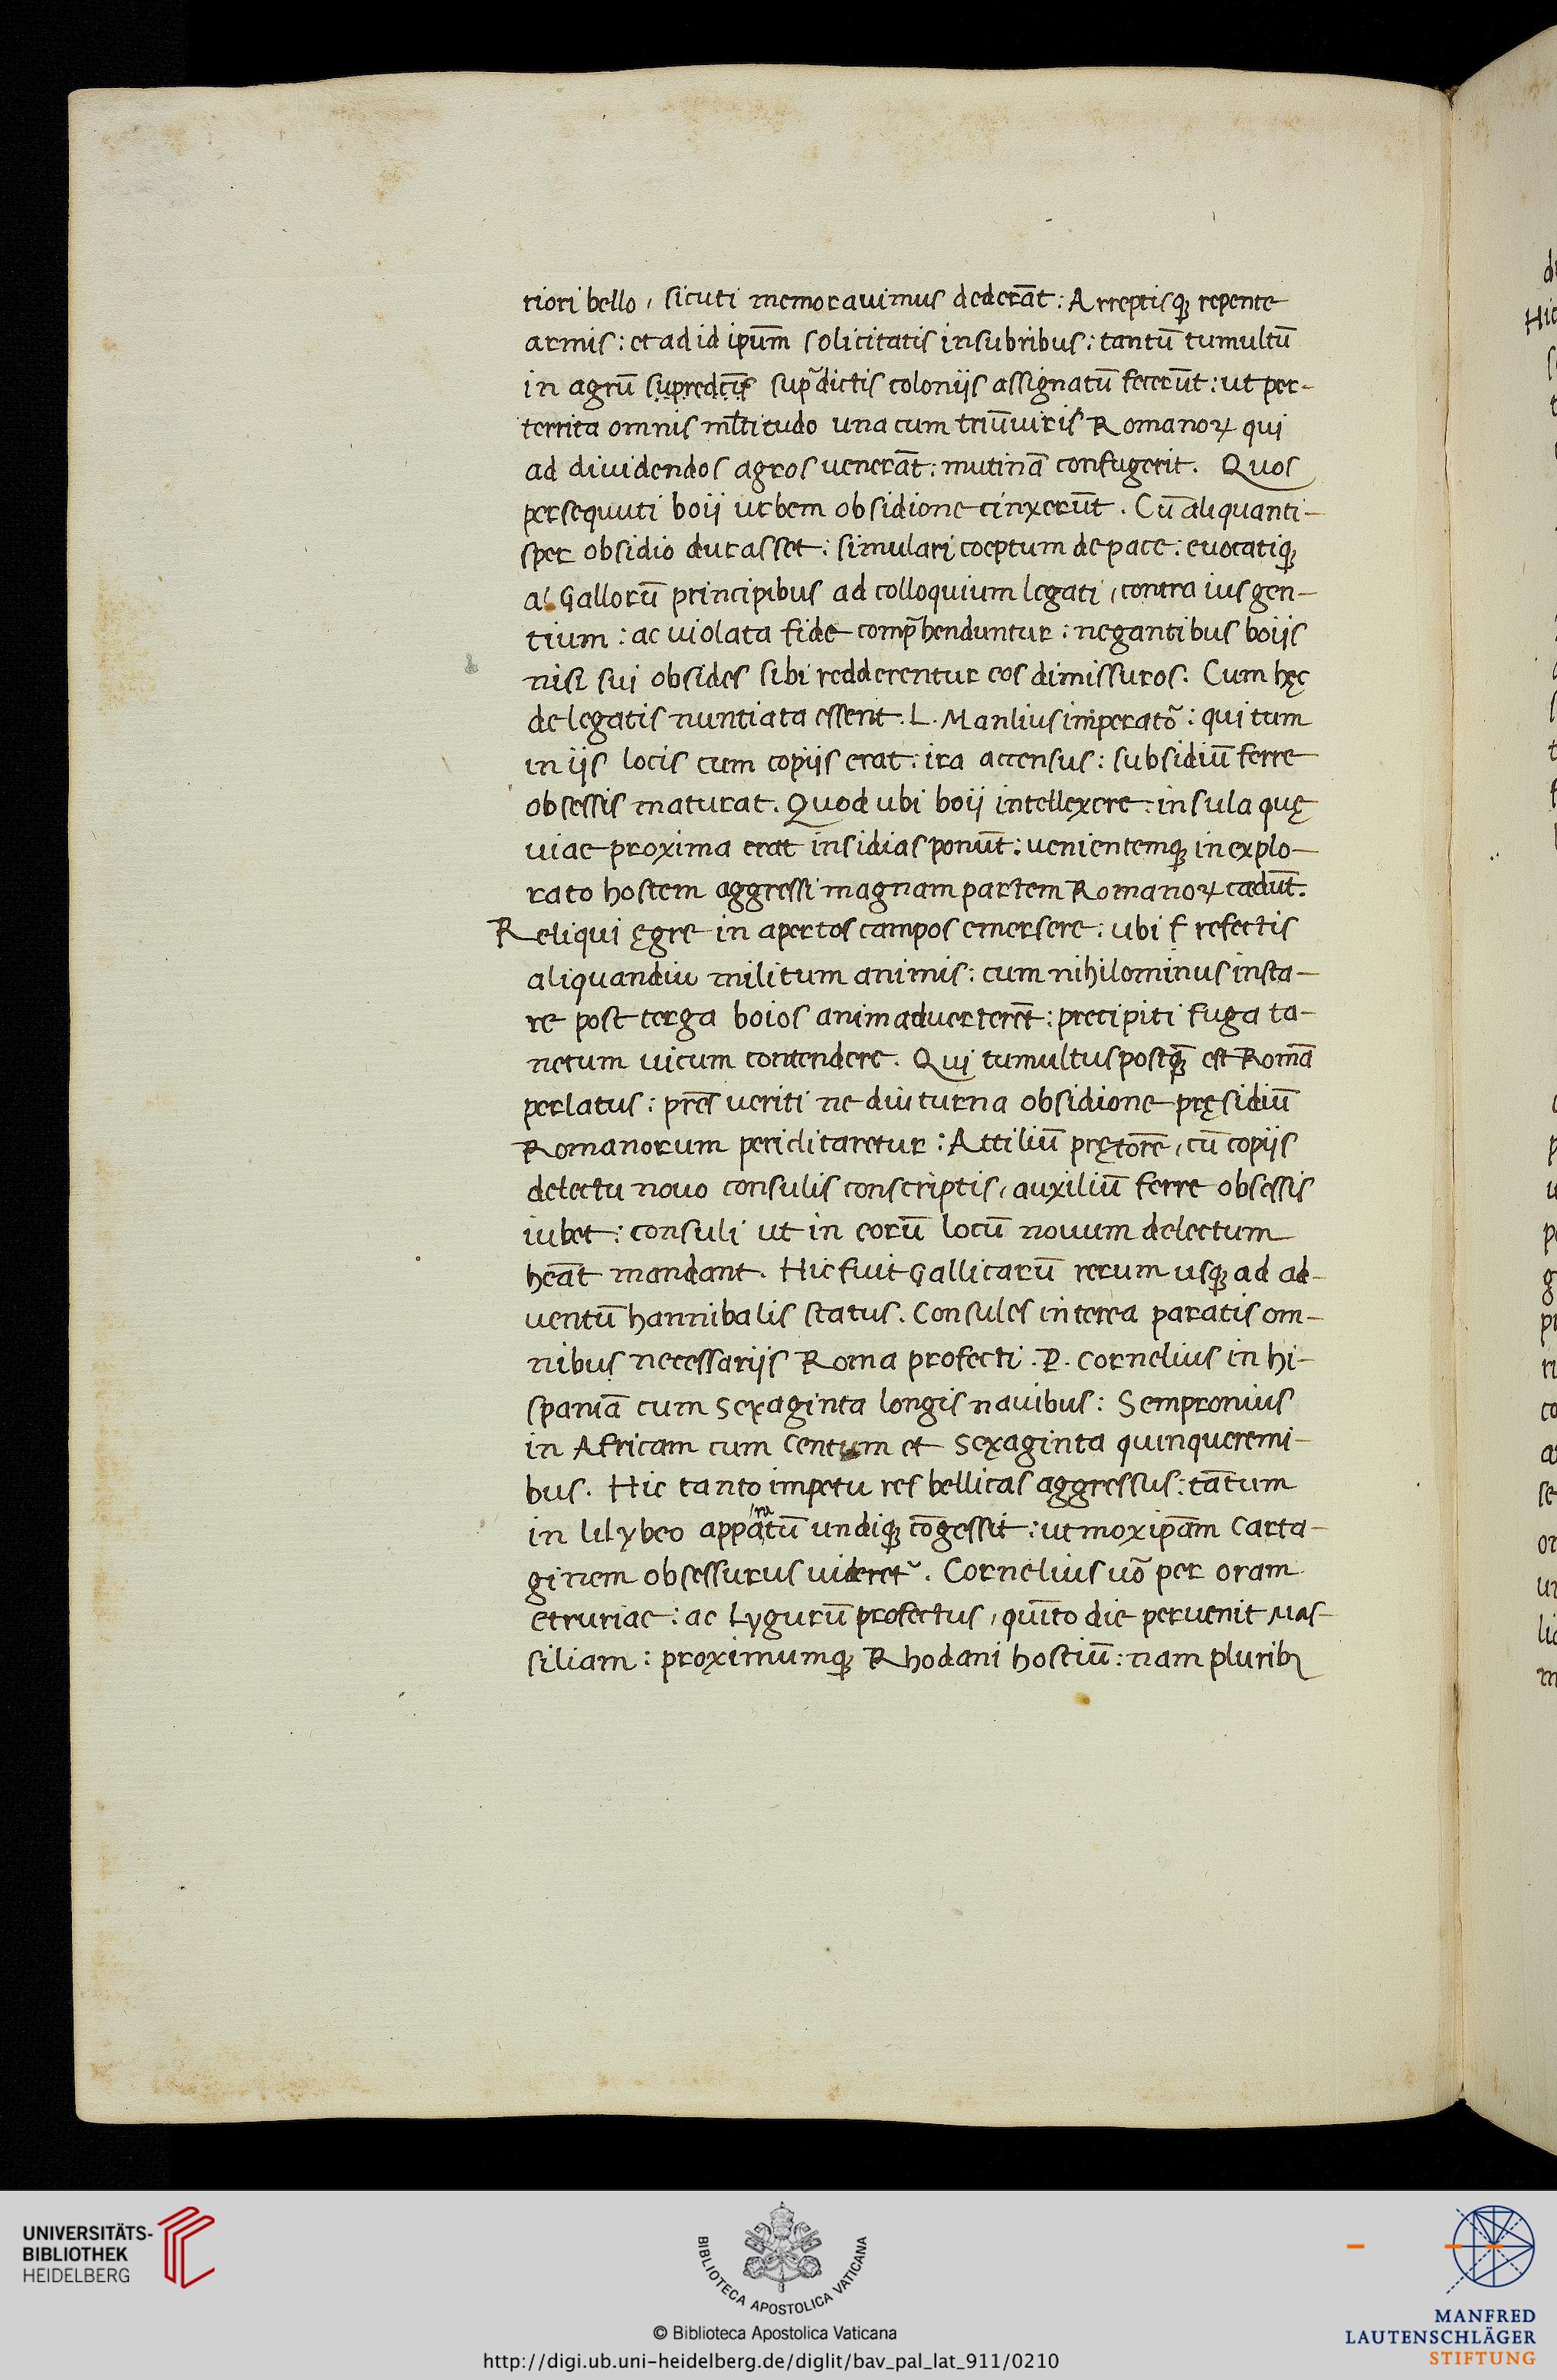 riori bello, sicuti memorauimus dederãt: Arreptisqꝫ repente
armis: et ad id ipũm solicitatis insubribus: tantũ tumultũ
in agrũ supredcĩs supᷓdictis coloniis assignatũ fecerũt: ut per-
territa omnis ml̃titudo una cum triũuiris Romanoꝝ qui
ad diuidendos agros venerãt: mutinã confugerit. Quos
persequuti boii urbem obsidione cinxerũt. Cũ aliquanti-
sper obsidio durasset: simulari coeptum de pace: euocatiqꝫ
a Gallorũ principibus ad colloquium legati, contra ius gen-
tium: ac uiolata fide comp̃henduntur: negantibus boiis
nisi sui obsides sibi redderentur eos dimissuros. Cum hęc
de legatis nuntiata essent. L. Manlius imperatõ: qui tum
in iis locis cum copiis erat: ira accensus: subsidiũ ferre
obsessis maturat. Quod ubi boii intellexere: insula quę
uiae proxima erat insidias ponũt: uenientemqꝫ inexplo-
rato hostem aggressi magnam partem Romanoꝝ cædũt.
Reliqui ęgre in apertos campos emersere: ubi f refectis
aliquandiu militum animis: cum nihilominus insta-
re post terga boios animaduerterẽt: precipiti fuga ta-
netum uicum contendere. Qui tumultus postqꝫ̃ est Romã
perlatus: pr̃es ueriti ne diuturna obsidione pręsidiũ
Romanorum periclitaretur: Attiliũ prętorẽ, cũ copiis
delectu nouo consulis conscriptis, auxiliũ ferre obsessis
iubet: consuli ut in eorũ locũ nouum delectum
heãt mandant. Hic fuit Gallicarũ rerum usqꝫ ad ad-
uentũ hannibalis status. Consules interea paratis om-
nibus necessariis Roma profecti. P. Cornelius in hi-
spaniã cum sexaginta longis nauibus: Sempronius
in Africam cum centum et sexaginta quinqueremi-
bus. Hic tanto impetu res bellicas aggressus: tãtum
in lilybeo apparatũ undiqꝫ cõgessit: ut mox ipãm Carta-
ginem obsessurus uideret᷑. Cornelius uõ per oram
etruriae: ac Lygurũ profectus, quĩto die peruenit Mas-
siliam: proximumqꝫ Rhodani hostiũ: nam pluribꝫ
UNIVERSITÄTS-
BIBLIOTHEK
HEIDELBERG
BIBLIOTECA APOSTOLICA VATICANA
© Biblioteca Apostolica Vaticana
http://digi.ub.uni-heidelberg.de/diglit/bav_pal_lat_911/0210
MANFRED
LAUTENSCHLÄGER
STIFTUNG